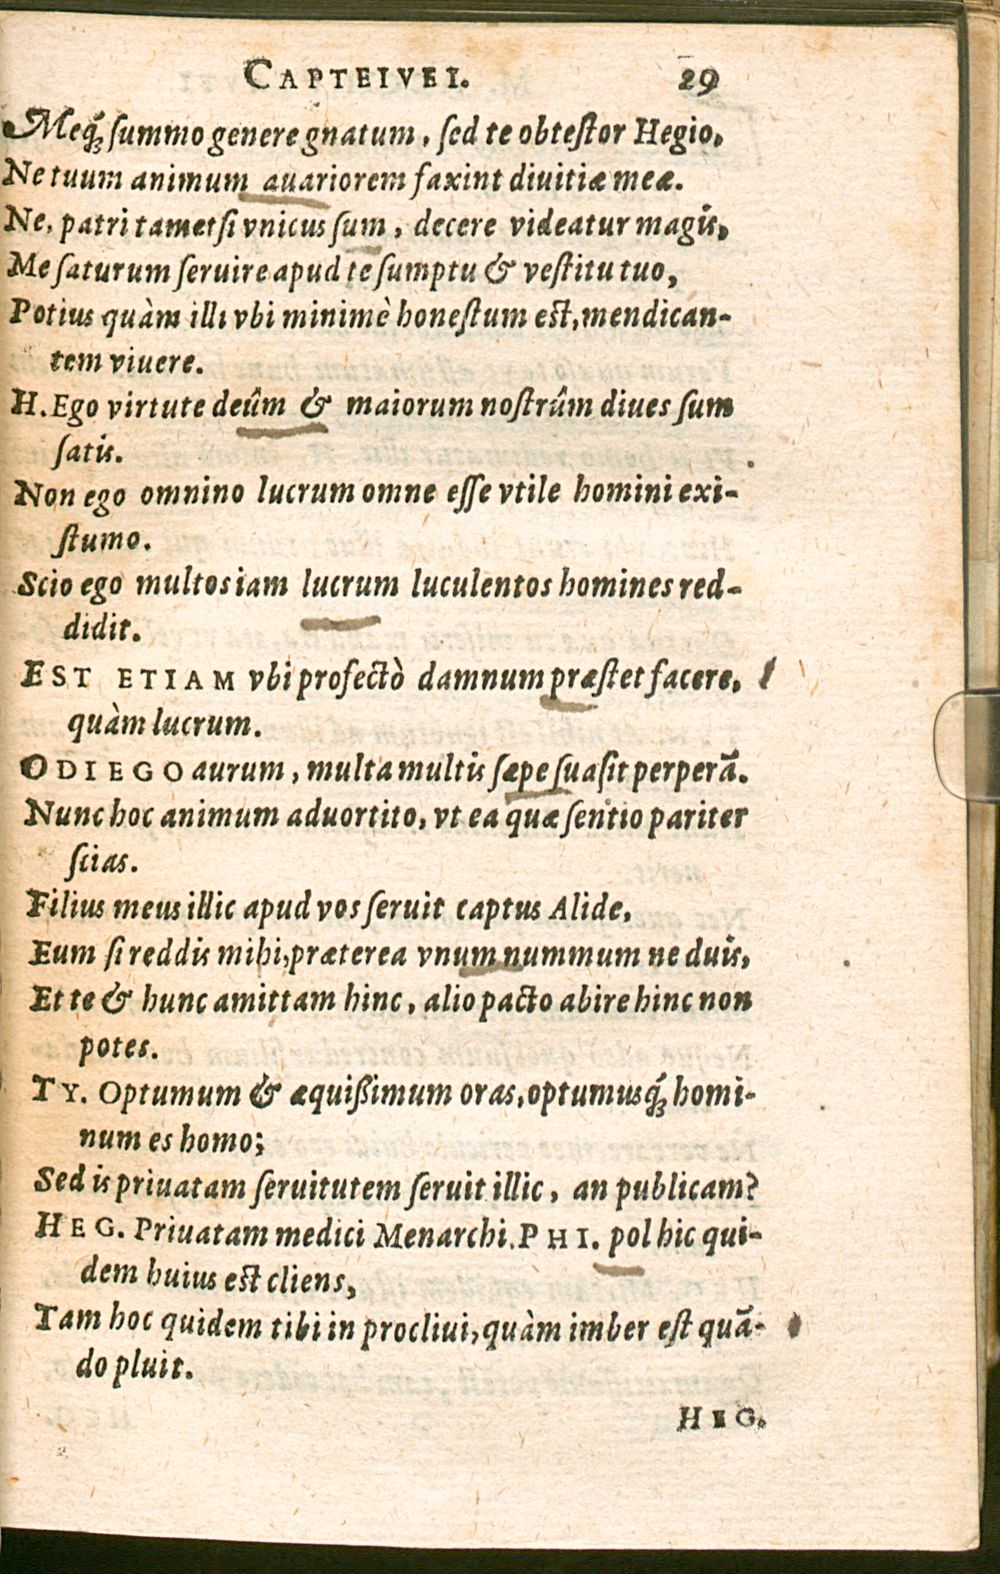 CAPTEIVEI. 29
Meq́; summo genere gnatum, sed te obtestor Hegio,
Ne tuum animum auariorem faxint diuitiæ meæ.
Ne, patri tametsi vnicus sum, decere videatur magis,
Me saturum seruire apud te sumptu & vestitu tuo,
Potius quàm illi vbi minimè honestum est, mendican-
tem viuere.
H. Ego virtute deûm & maiorum nostrûm diues sum
satis.
Non ego omnino lucrum omne esse vtile homini exi-
stumo.
Scio ego multos iam lucrum luculentos homines red-
didit.
EST ETIAM vbi profectò damnum præstet facere,
quàm lucrum.
ODI EGO aurum, multa multis sæpe suasit perperã.
Nunc hoc animum aduortito, vt ea quæ sentio pariter
scias.
Filius meus illic apud vos seruit captus Alide,
Eum si reddis mihi, præterea vnum nummum ne duis,
Et te & hunc amittam hinc, alio pacto abire hinc non
potes.
TY. Optumum & æquißimum oras, optumusq́; homi-
num es homo;
Sed is priuatam seruitutem seruit illic, an publicam?
HEG. Priuatam medici Menarchi. PHI. pol hic qui-
dem huius est cliens,
Tam hoc quidem tibi in procliui, quàm imber est quã-
do pluit.
HEG.